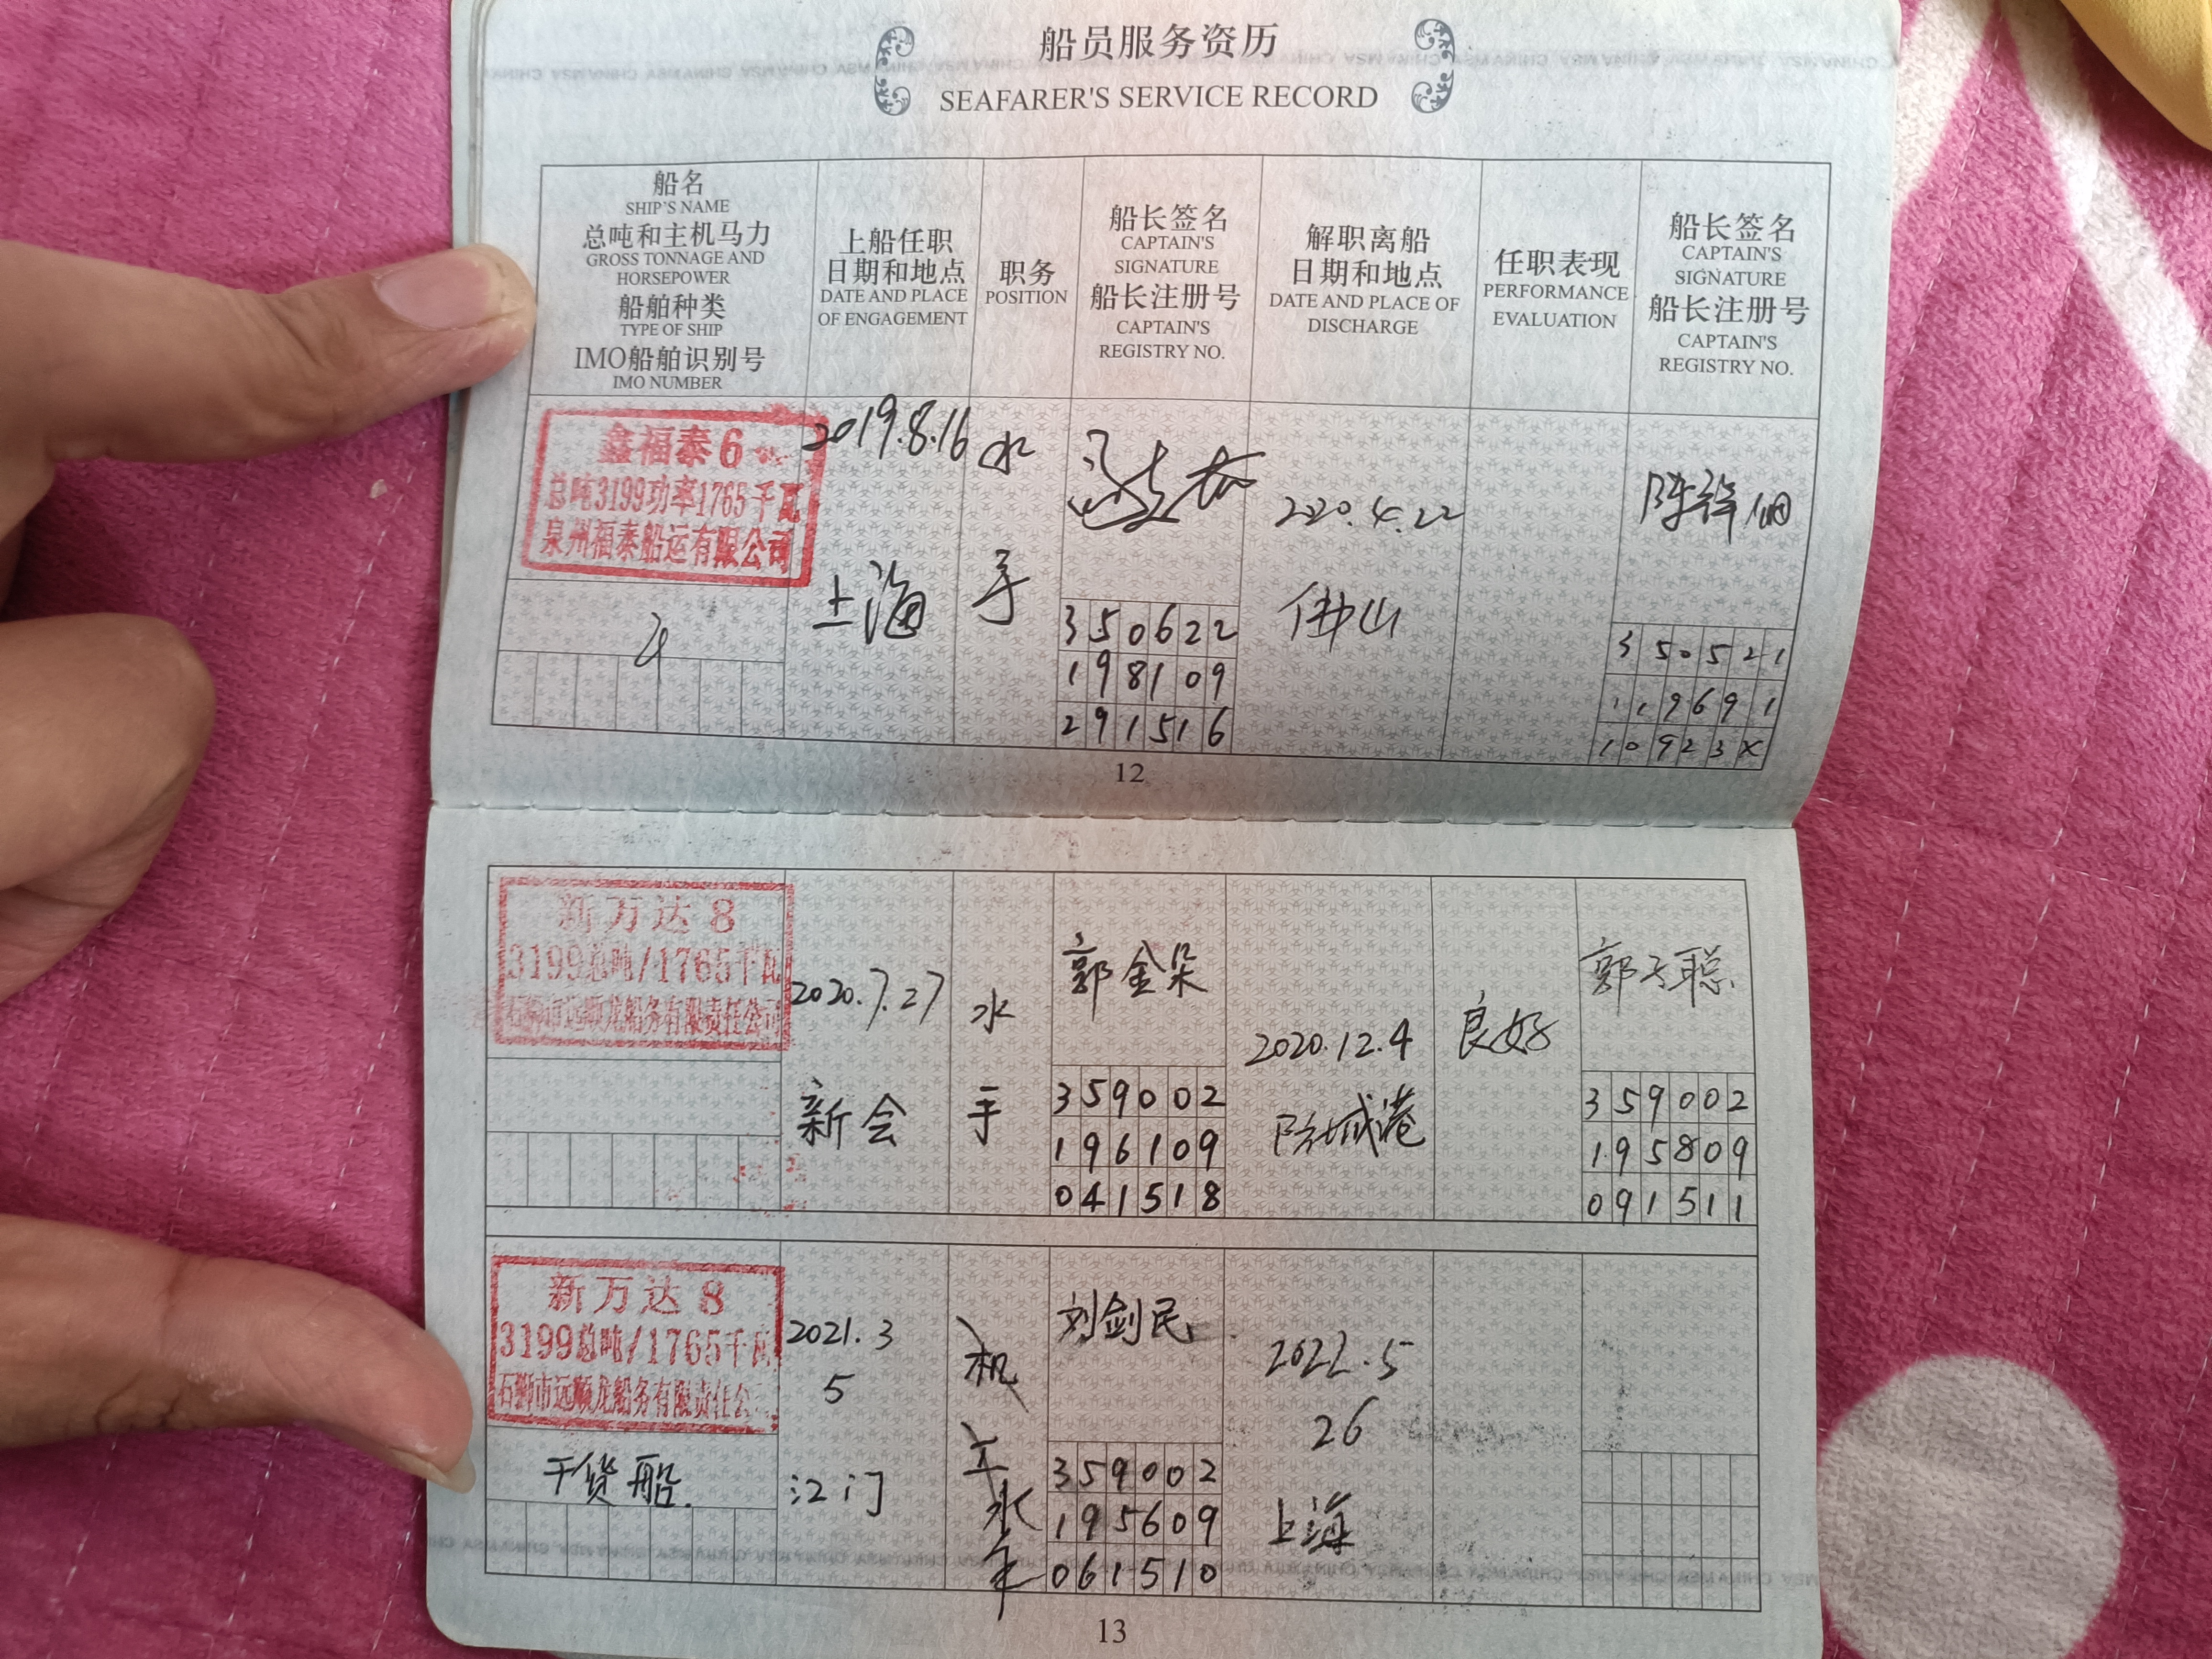 船员服务资历
SEAFARER'S SERVICE RECORD
船名
SHIP'S NAME
总吨和主机马力
GROSS TONNAGE AND
HORSEPOWER
船舶种类
TYPE OF SHIP
IMO船舶识别号
IMO NUMBER
上船任职
日期和地点
DATE AND PLACE
OF ENGAGEMENT
职务
POSITION
船长签名
CAPTAIN'S
SIGNATURE
船长注册号
CAPTAIN'S
REGISTRY NO.
解职离船
日期和地点
DATE AND PLACE OF
DISCHARGE
任职表现
PERFORMANCE
EVALUATION
船长签名
CAPTAIN'S
SIGNATURE
船长注册号
CAPTAIN'S
REGISTRY NO.
鑫福泰6
总吨3199功率1765千瓦
泉州福泰船运有限公司
2019.8.16
上海
水
手
350622
198109
291516
2020.4.22
佛山
350521
119691
10923X
12
新万达8
3199总吨/1765千瓦
石狮市远顺龙船务有限责任公司
2020.7.27
新会
水
手
郭金朵
359002
196109
041518
2020.12.4
防城港
良好
359002
195809
091511
新万达8
3199总吨/1765千瓦
石狮市远顺龙船务有限责任公
干货船.
2021.3
5
江门
机
工
水
手
刘剑民
359002
195609
061510
2022.5
26
上海
13